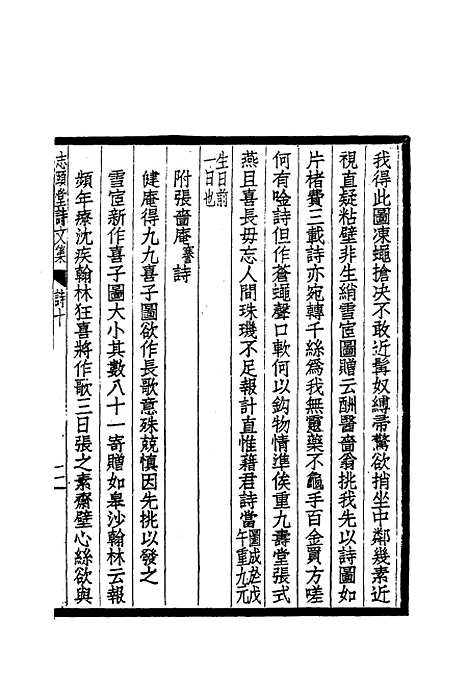 我得此圖凍蠅搶決不敢近髯奴縛帚驚欲捎坐中鄰幾素近
視直疑粘壁非生綃雪宧圖贈云酬醫嗇翁挑我先以詩圖如
片楮費三載詩亦宛轉千絲爲我無靈藥不龜手百金買方嗟
何有唫詩但作蒼蠅聲口軟何以鈎物情準俟重九壽堂張式
燕且喜長毋忘人間珠璣不足報計直惟藉君詩當圖成於戊午重九元
生日前一日也
附張嗇庵謇詩
健庵得九九喜子圖欲作長歌意殊兢慎因先挑以發之
雪宧新作喜子圖大小其數八十一寄贈如皋沙翰林云報
頻年療沈疾翰林狂喜將作歌三日張之素齋壁心絲欲與
志頤堂詩文集
詩十
二